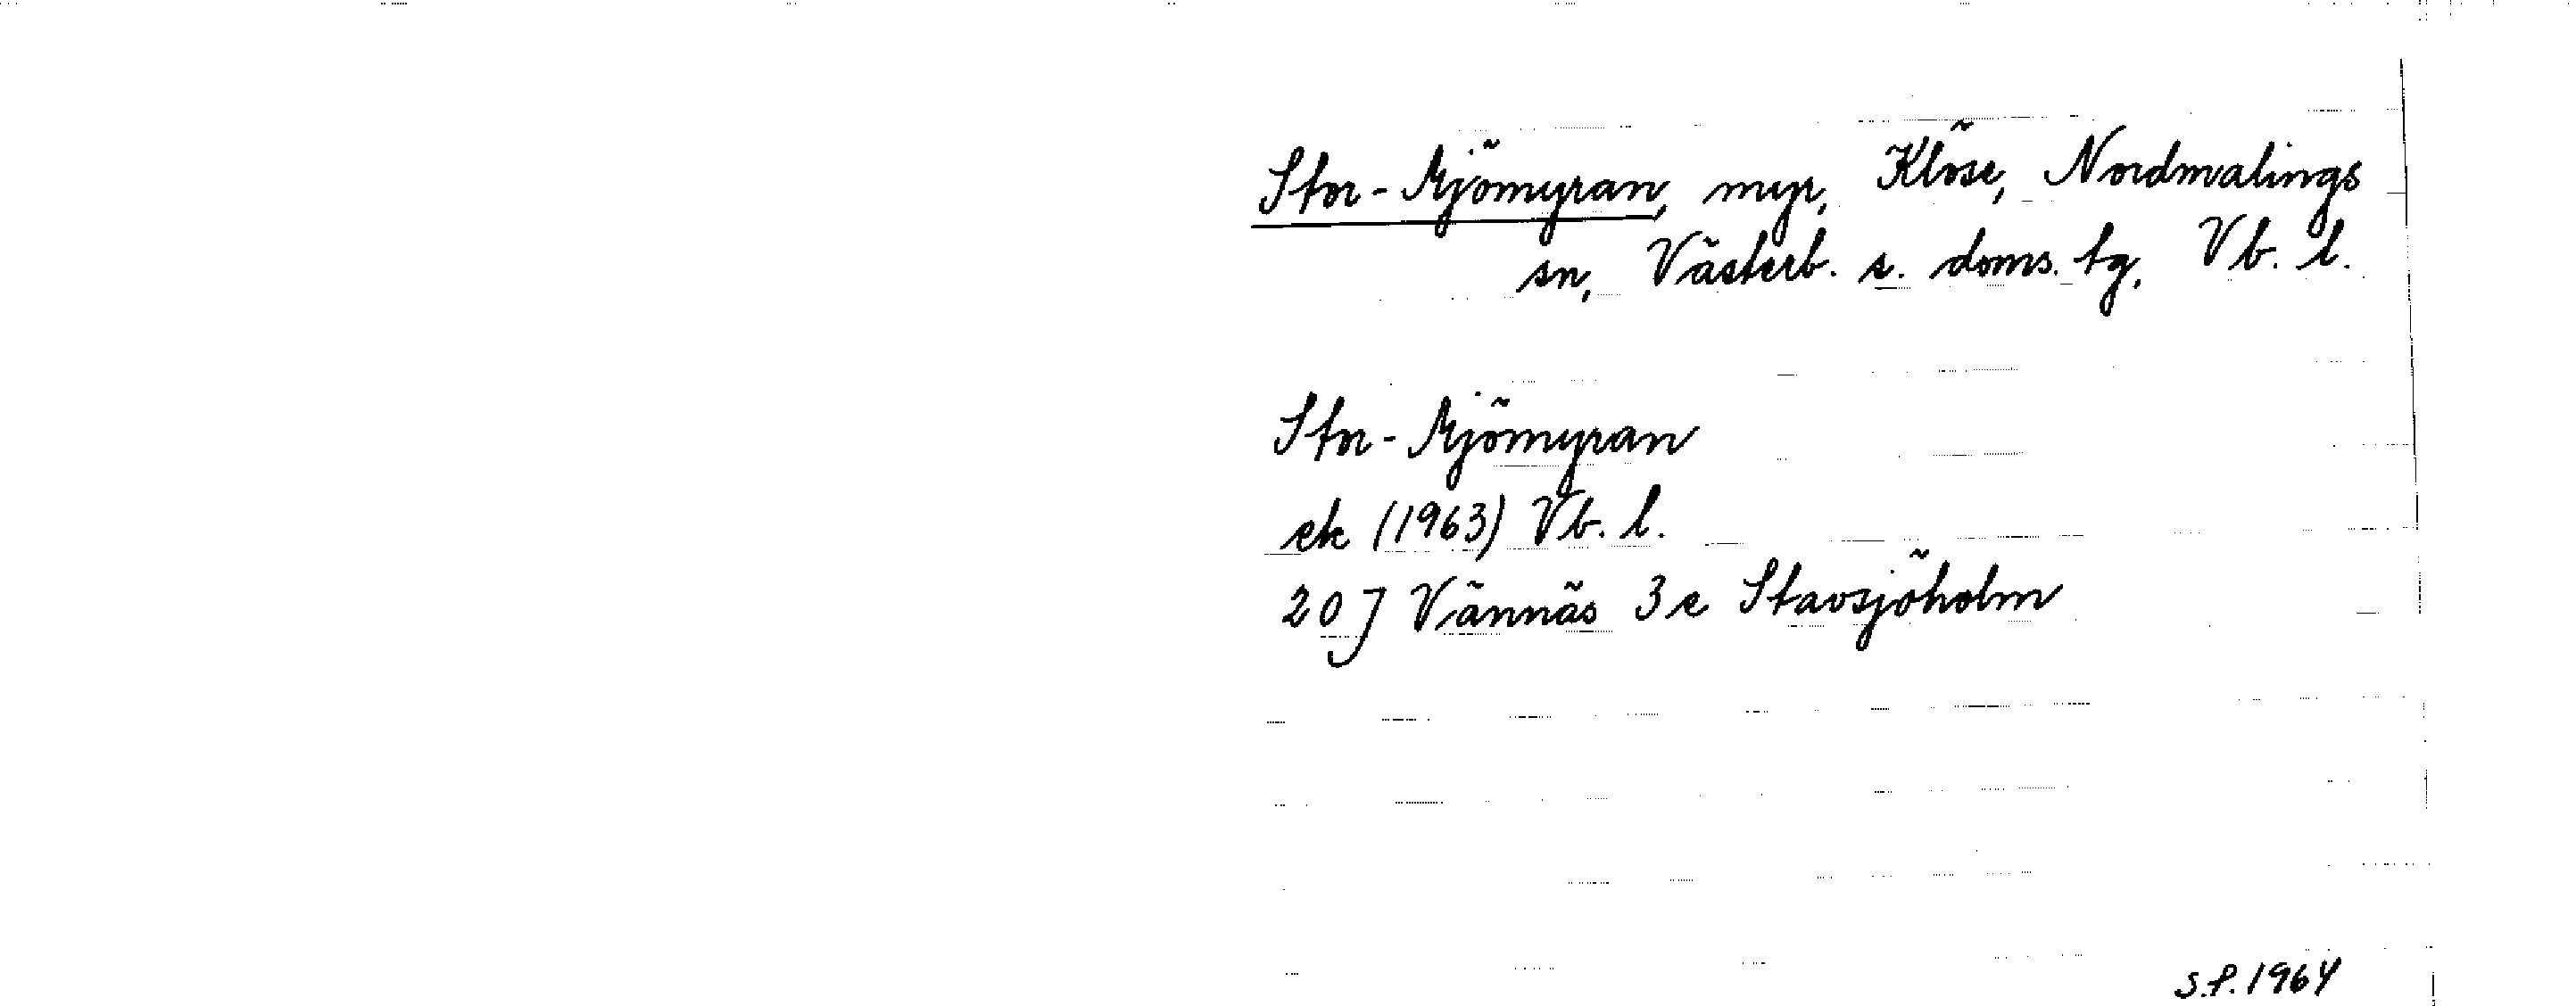 Stor-Mjömyran, myr, Klöse, Nordmalings
sn, Västerb. s. doms. tg, Vb. l.
Stor-Mjömyran
ek (1963) Vb. l.
20 J Vännäs 3 e Stavsjöholm
S.P. 1964